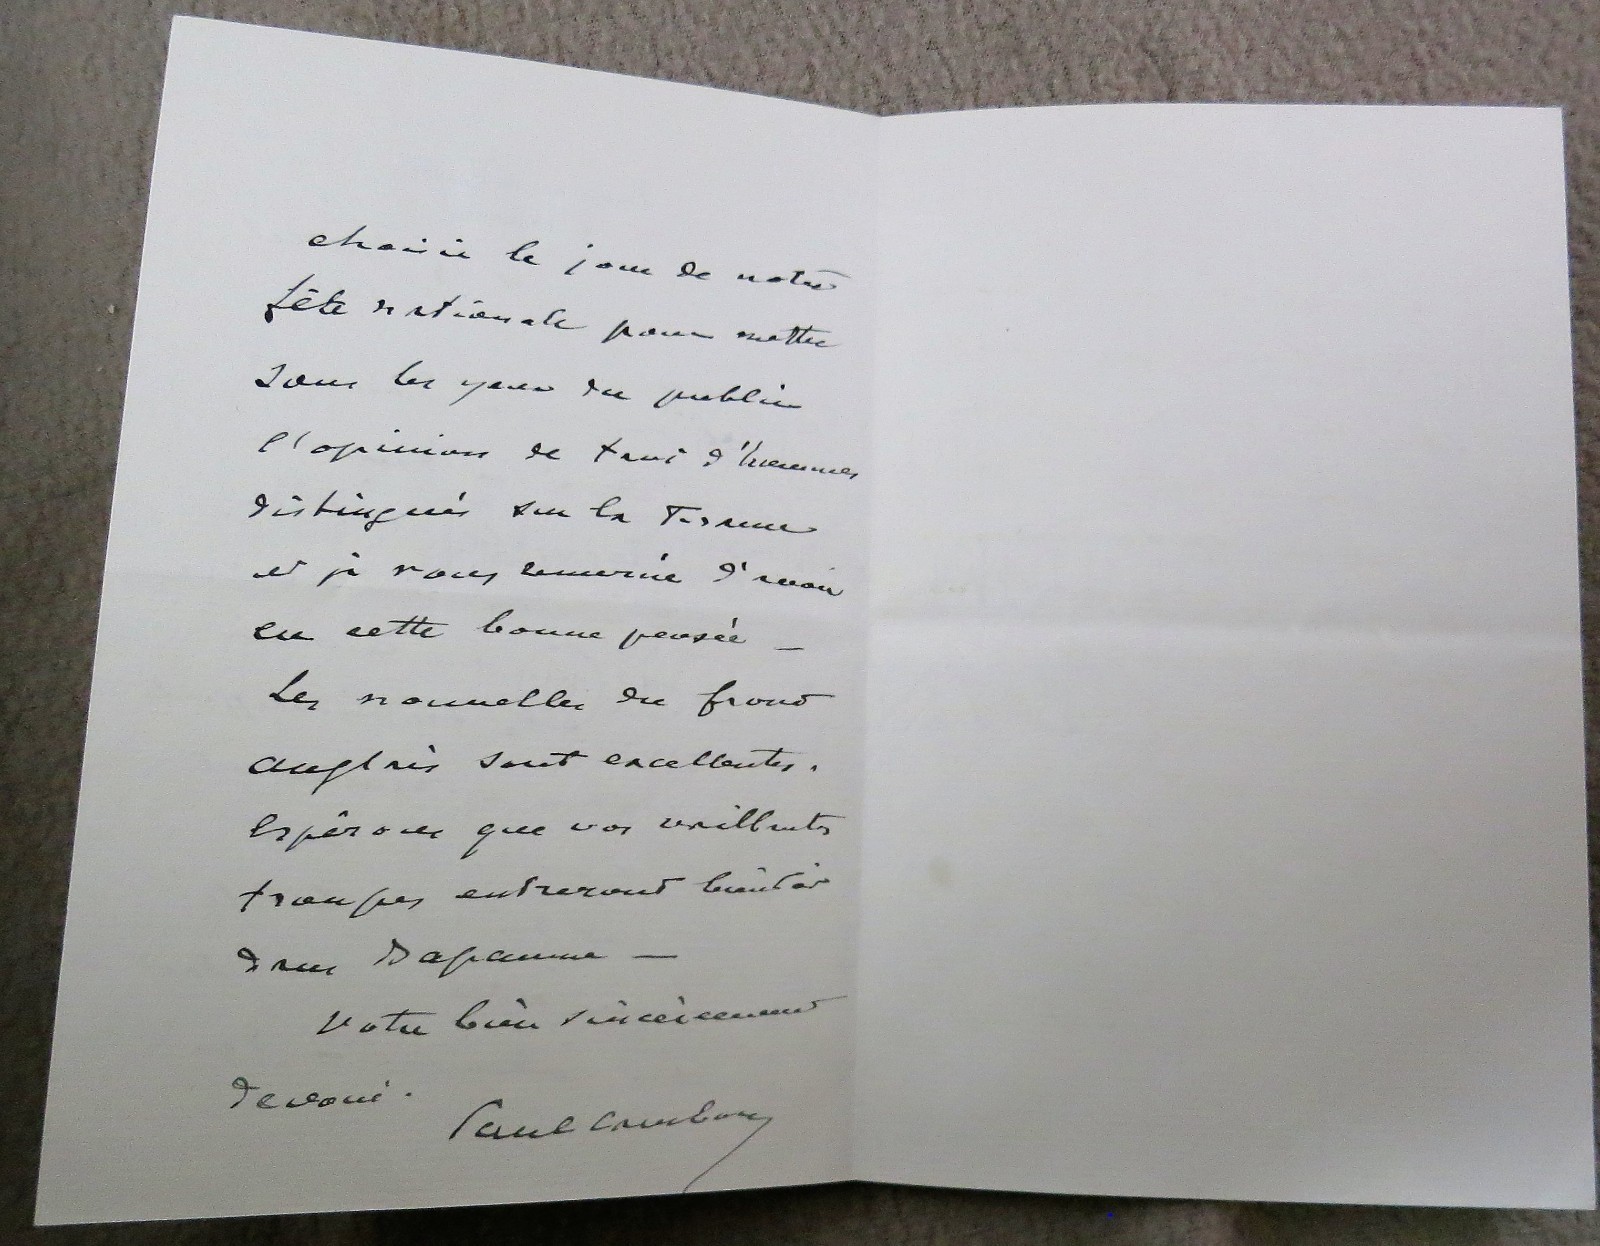 choisir le jour de notre
fête nationale pour mettre
sous les yeux du public
l'opinion de tant d'hommes
distingués sur la France
et je vous remercie d'avoir
eu cette bonne pensée _
Les nouvelles du front
anglais sont excellentes.
Espérons que vos vaillantes
troupes entreront bientôt
dans Bapaume —
Votre bien sincèrement
dévoué.
Paul Cambon